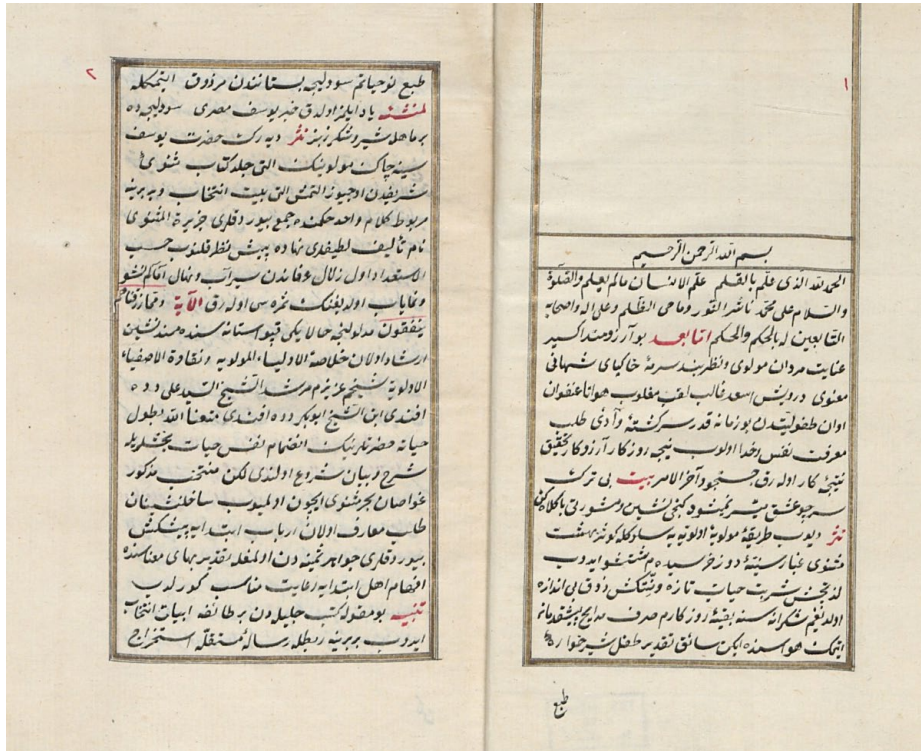 ١
بسم الله الرحمن الرحيم
الحمد لله الذى علم بالقلم علم الانسان مالم يعلم والصلوة
والسلام على محمد ناشر النور وماحى الظلم وعلى اله واصحابه
التابعين له بالحكم والحكم اما بعد بو آرزومند اكسير
عنايت مردان مولوى ونظربند سرمهٔ خاكپاى شهانى
معنوى درويش اسعد غالب لقب مغلوب هوا تا عنفوان
اوان طفوليتدن بو زمانه قدر سركشتهٔ وآدئ طلب
معرفت نفس وخدا اولوب نيجه روزكار آرزوكار تحقيق
نتيجهٔ كار اوله رق جستجو و آخر الامر بيت بى ترك
سر جو عشق ميسر نميشود
نثر ديوب طريقهٔ مولويهٔ اولويه يه
مثنوى غبار سينهٔ دوزخ رسيده م شستشو ايدوب
لذتبخش شربت حيات تازه ذوق بى اندازه
اولديغم شكرانه سنه بقيهٔ روزكارم صرف
ايتمك هواسنده ايكن سائق تقدير طفل شيرخواره
طبع
٢
طبع نوحياتم سودليجه بستانندن مرزوق ايتمكله
لمنشئه ياد ايلمز اولدق خبر يوسف مصرى سودليجه ده
بر ماهله شير وشكرز بز نثر ديه رك حضرت يوسف
سينه چاك مولوينك التى جلد كتاب مثنوئ
شريفدن اوچيوز التمش التى بيت انتخاب و بربرينه
مربوط كلام واحد حكمنده جمع بيوردقلرى جزيرة المثنوى
نام تأليف لطيفلرى نهادهٔ پيش نظر قلنوب حسب
الاستعداد اول زلال عرفاندن سيراب ونهال
ونماياب اولديغنك ثمره سى اوله رق الآية ومما رزقناهم
ينفقون مدلولنجه حالا يكى قپو استانه سنده مسندنشين
ارشاد اولان خلاصة الاولياء المولويه ونقاوة الاصفياء
الاولويه شيخم عزيزم مرشدم الشيخ السيد على دده
افندى ابن الشيخ ابوبكر دده افندى متعنا الله بطول
حياته حضرتلرينك انضمام نفس حيات بخشلريله
شرح وبيان شروع اولندى لكن منتخب مذكور
غواصان بحر مثنوى ايچون اولميوب ساحلنشينان
طلب معارف اولان ارباب ابتدايه پيشكش
بيوردقلرى جواهر ثمينه دن اولمغله تقدير بهاى معناسنده
افهام اهل ابتدايه رعايت مناسب كورلدى
تنبيه بو مقوله كتب جليله دن بر طائفه ابيات انتخاب
ايدوب بربرينه ربطله رسالهٔ مستقله استخراج